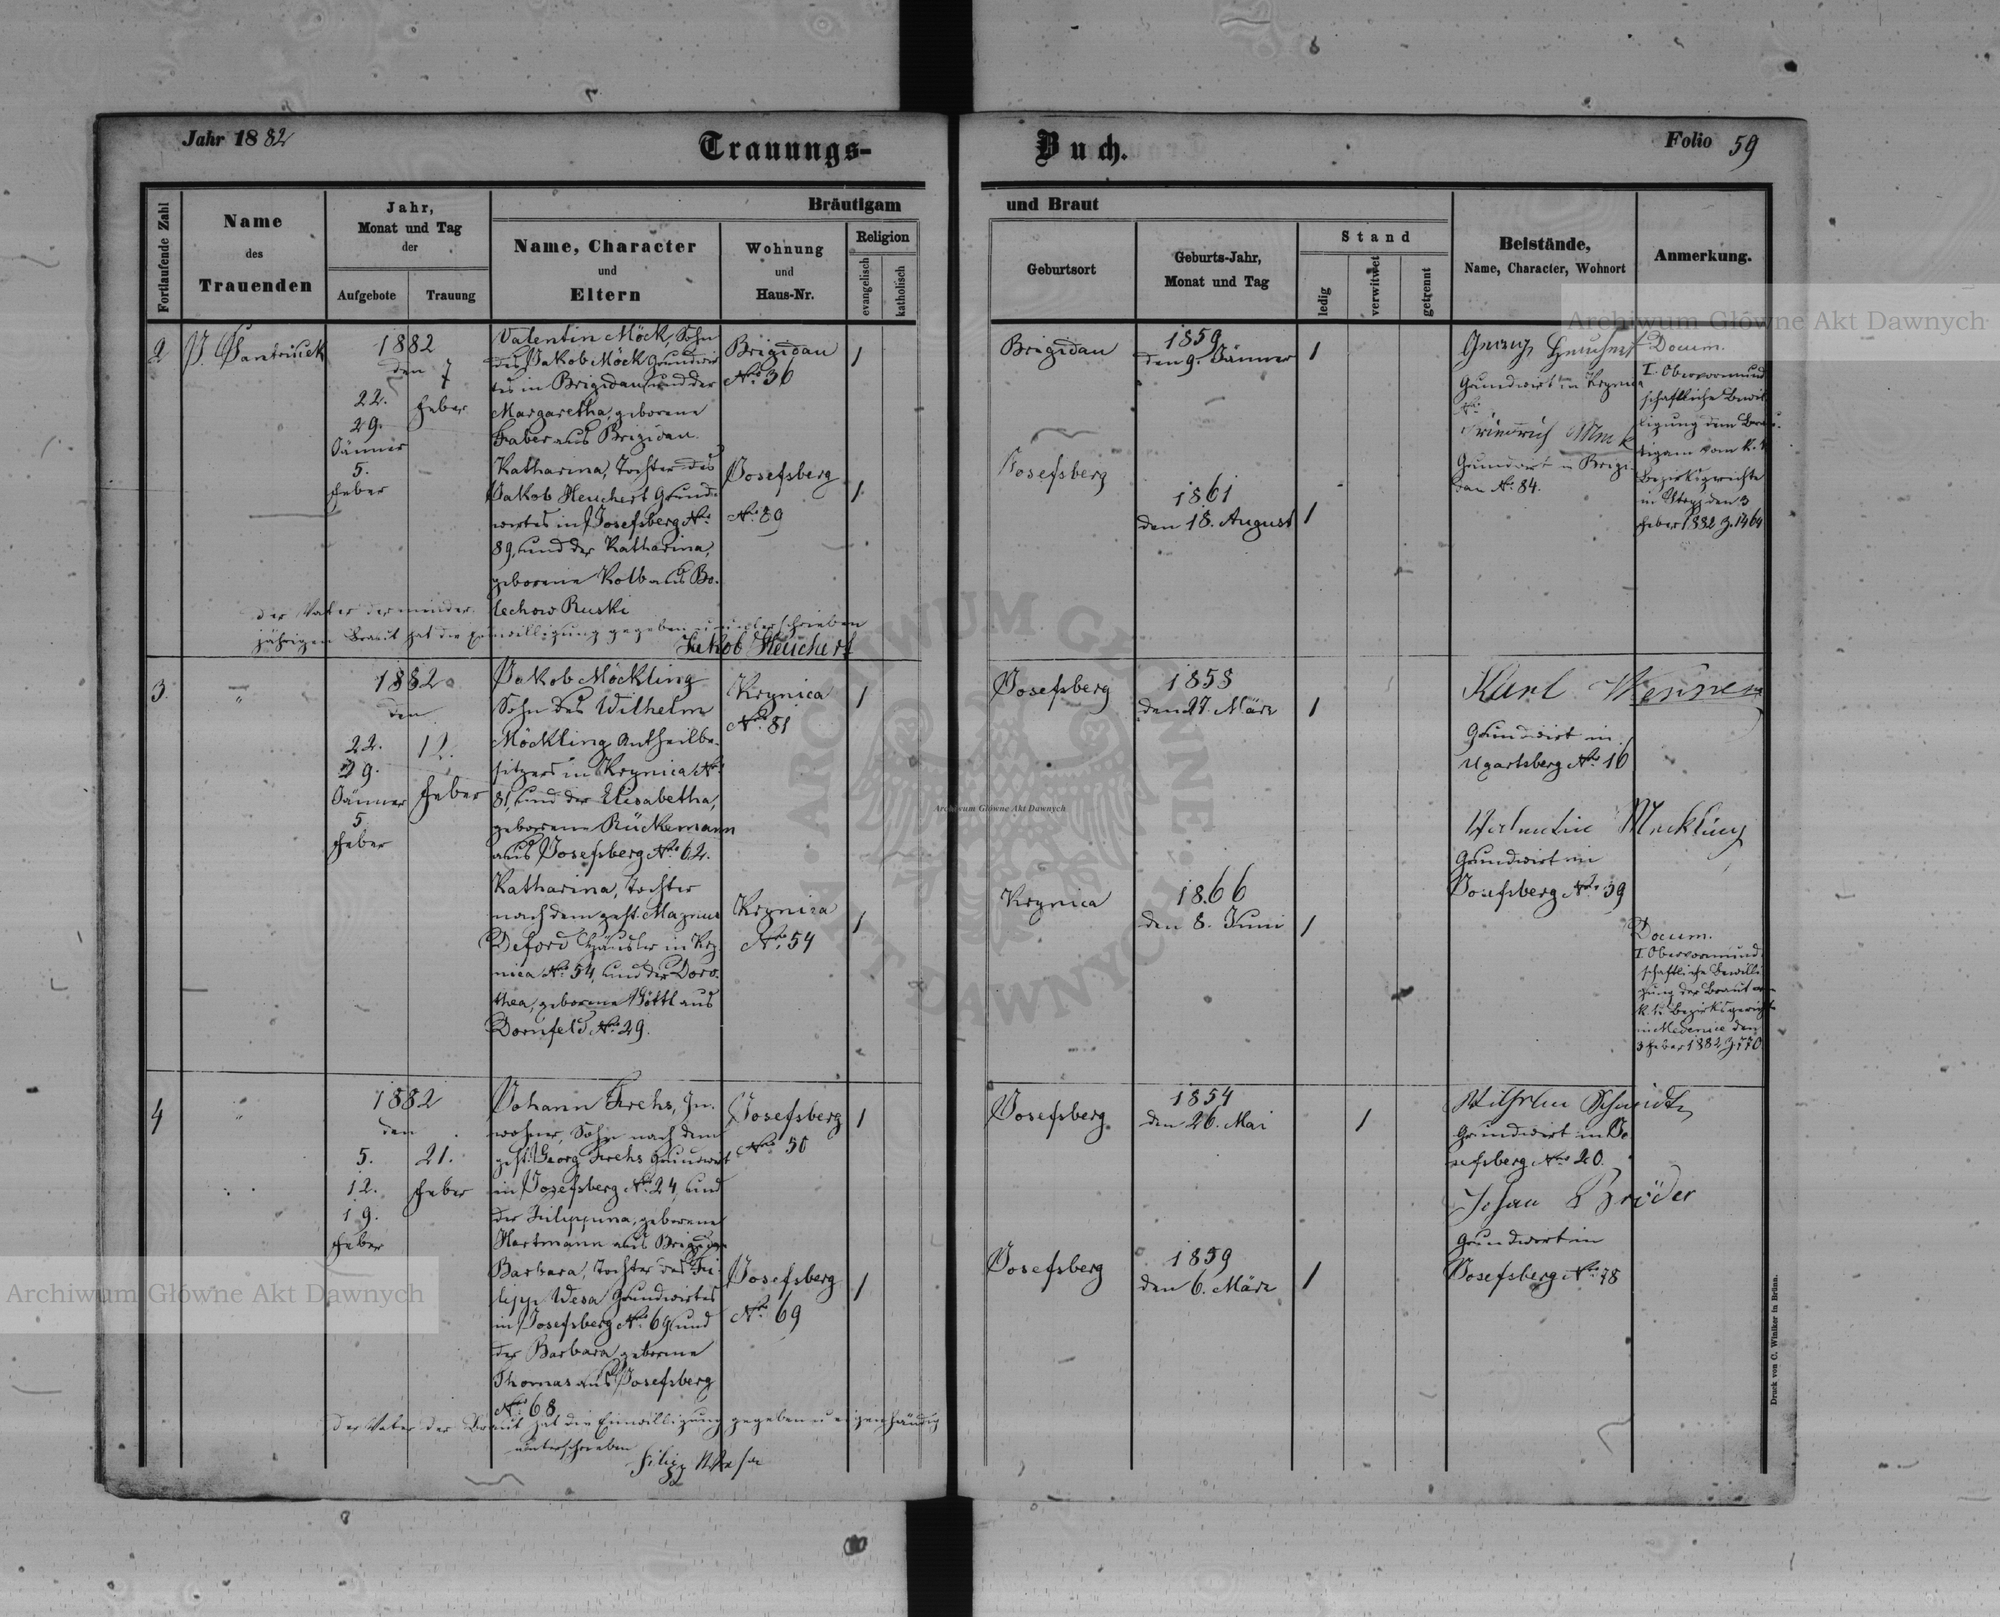 Jahr 1882
Trauungs-
Buch.
Folio 59
Fortlaufende Zahl
Name
des
Trauenden
Jahr,
Monat und Tag
der
Aufgebote
Trauung
Bräutigam
Name, Character
und
Eltern
Wohnung
und
Haus-Nr.
Religion
evangelisch
katholisch
und Braut
Geburtsort
Geburts-Jahr,
Monat und Tag
Stand
ledig
verwitwet
getrennt
Beistände,
Name, Character, Wohnort
Anmerkung.
2
1882
den 7
22.
Feber
29.
Jänner
5.
Feber
Valentin Möck, Sohn
des Jakob Möck Grundwir
tes in Brigidau und der
Margaretha, geborene
Faber aus Brigidau.
Brigidau
No. 36
1
Katharina, Tochter des
Jakob Heuchert Grund-
wirtes in Josefsberg No.
89, und der Katharina,
geborene Kolb aus Bo-
lechow Ruski
Josefsberg
No. 89
1
der Vater der minder-
jährigen Braut hat die Einwilligung gegeben u unterschrieben
Jakob Heuchert
Brigidau
1859
den 9. Jänner
1
Josefsberg
1861
den 18. August
1
Georg Heuchert
Grundwirt in Krynica
No.
Friedrich Möck
Grundwirt in Brigi-
dau No. 84.
Docum.
I. Obervormund
schaftliche Bewil
ligung dem Bräu-
tigam vom k. k.
Bezirksgerichte
in Stryj den 3
Feber 1882 Z. 1464
3
"
1882
den
22.
12.
29.
Jänner
Feber
5
Feber
Jakob Möckling
Sohn des Wilhelm
Möckling Antheilbe-
sitzers in Krynica No.
81, und der Elisabetha,
geborene Rückemann
aus Josefsberg No. 62.
Krynica
No. 81
1
Katharina, Tochter
nach dem gest. Magnus
Deford Häusler in Kry
nica No. 54, und der Doro-
thea, geborene Göttl aus
Dornfeld No. 29.
Krynica
No. 54
1
Josefsberg
1858
den 27. März
1
Krynica
1866
den 8. Juni
1
Karl
Grundwirt in
Ugartsberg No. 16
Valentin Meckling
Grundwirt in
Josefsberg No. 39
Docum.
I. Obervormund
schaftliche Bewilli
gung der Braut vom
k. k. Bezirksgericht
in Medenice den
3 Feber 1882 Z. 770
4
"
1882
den
5.
21.
12.
Feber
19.
Feber
Johann Frehs, In-
wohner, Sohn nach dem
gest. Georg Frehs Grundwirt
in Josefsberg No. 24, und
der Filippina, geborene
Hartmann aus Brigidau
Josefsberg
No. 50
1
Barbara, Tochter des Fi-
lipp Wesa Grundwirtes
in Josefsberg No. 69, und
der Barbara, geborene
Thomas aus Josefsberg
No. 68
Josefsberg
No. 69
1
der Vater der Braut hat die Einwilligung gegeben u eigenhändig
unterschrieben
Filipp
Josefsberg
1854
den 26. Mai
1
Josefsberg
1859
den 6. März
1
Wilhelm Schmidt
Grundwirt in Jo
sefsberg No. 20.
Johan Bröder
Grundwirt in
Josefsberg No. 78
Druck von C. Winiker in Brünn.
Archiwum Główne Akt Dawnych
Archiwum Główne Akt Dawnych
Archiwum Główne Akt Dawnych
ARCHIWUM GŁÓWNE · AKT DAWNYCH ·